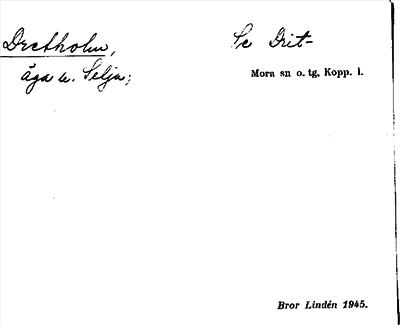 Dretholm, Se Drit-
äga u. Selja; Mora sn o. tg, Kopp. l.
Bror Lindén 1945.